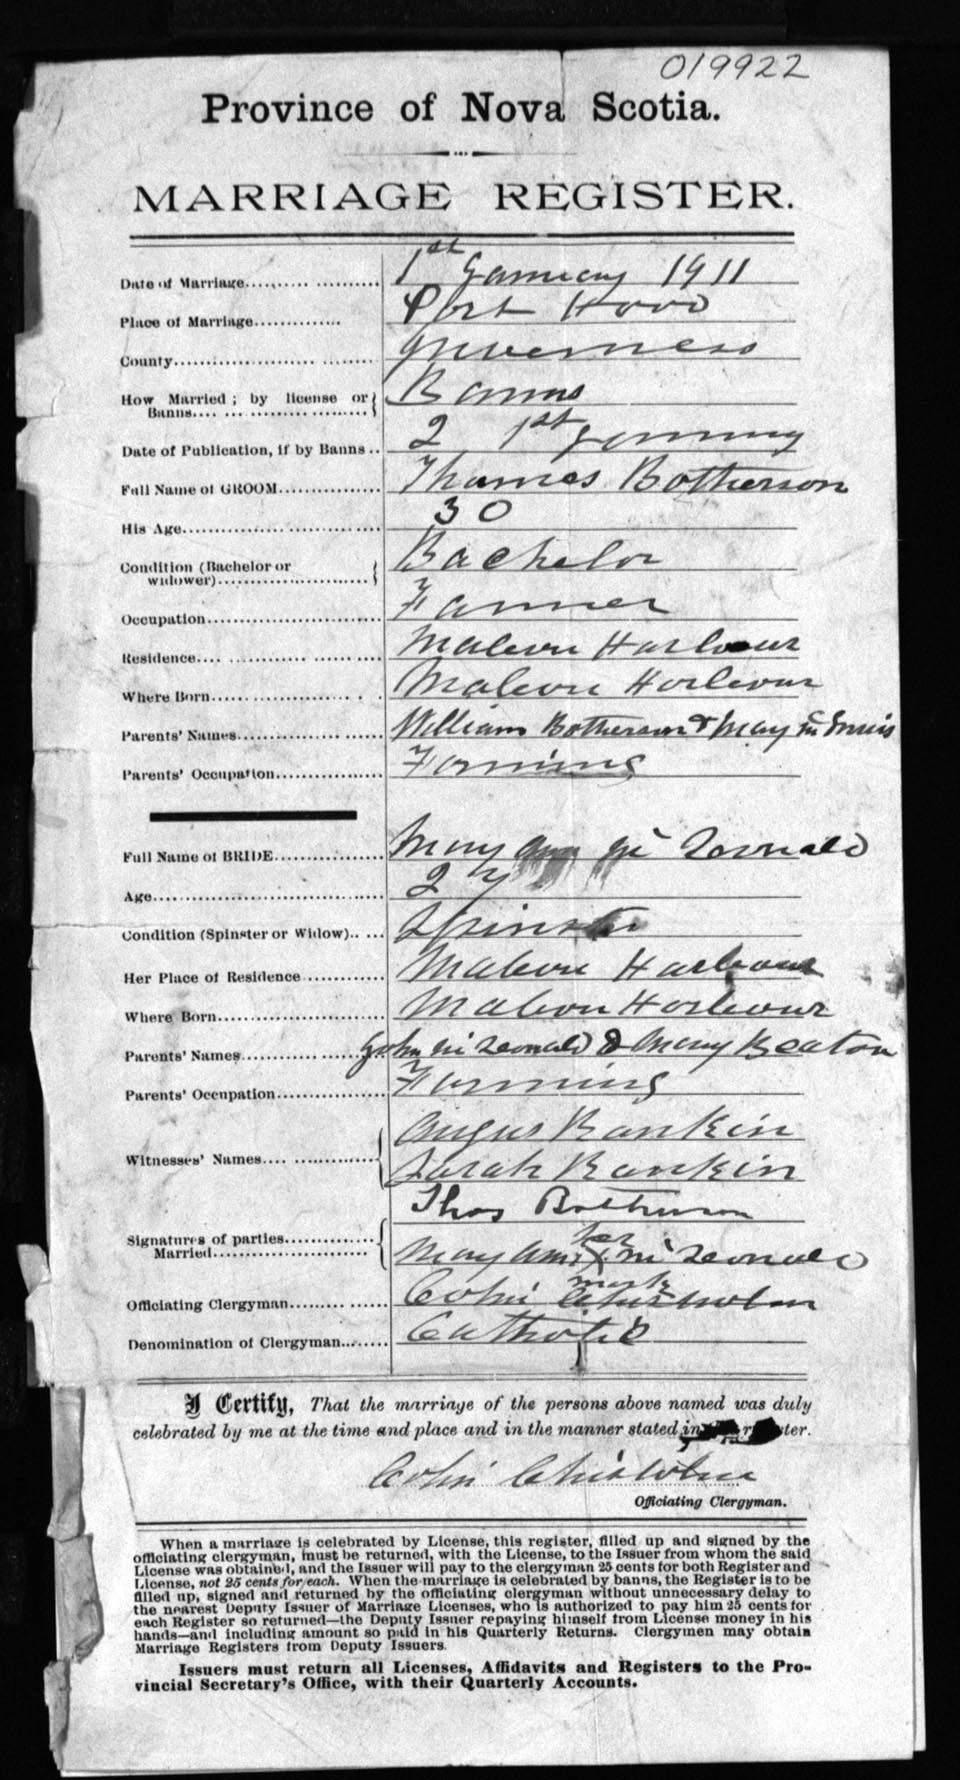 019922
Province of Nova Scotia.
MARRIAGE REGISTER.
Date of Marriage 1st January 1911
Place of Marriage Port Hood
County Inverness
How Married; by license or Banns Banns
Date of Publication, if by Banns 2 1st January
Full Name of GROOM Thomas Botherson
His Age 30
Condition (Bachelor or widower) Bachelor
Occupation Farmer
Residence Mabou Harbour
Where Born Mabou Harbour
Parents' Names William Botherson & Mary McInnis
Parents' Occupation Farming
Full Name of BRIDE Mary Ann McDonald
Age 27
Condition (Spinster or Widow) Spinster
Her Place of Residence Mabou Harbour
Where Born Mabou Harbour
Parents' Names John McDonald & Mary Beaton
Parents' Occupation Farming
Witnesses' Names Angus Rankin
Sarah Rankin
Signatures of parties Married Thos Botherson
Mary Ann her X mark McDonald
Officiating Clergyman Colin Chisholm
Denomination of Clergyman Catholic
I Certify, That the marriage of the persons above named was duly
celebrated by me at the time and place and in the manner stated in
Colin Chisholm
Officiating Clergyman.
When a marriage is celebrated by License, this register, filled up and signed by the
officiating clergyman, must be returned, with the License, to the Issuer from whom the said
License was obtained, and the Issuer will pay to the clergyman 25 cents for both Register and
License, not 25 cents for each. When the marriage is celebrated by banns, the Register is to be
filled up, signed and returned by the officiating clergyman without unnecessary delay to
the nearest Deputy Issuer of Marriage Licenses, who is authorized to pay him 25 cents for
each Register so returned—the Deputy Issuer repaying himself from License money in his
hands—and including amount so paid in his Quarterly Returns. Clergymen may obtain
Marriage Registers from Deputy Issuers.
Issuers must return all Licenses, Affidavits and Registers to the Pro-
vincial Secretary's Office, with their Quarterly Accounts.